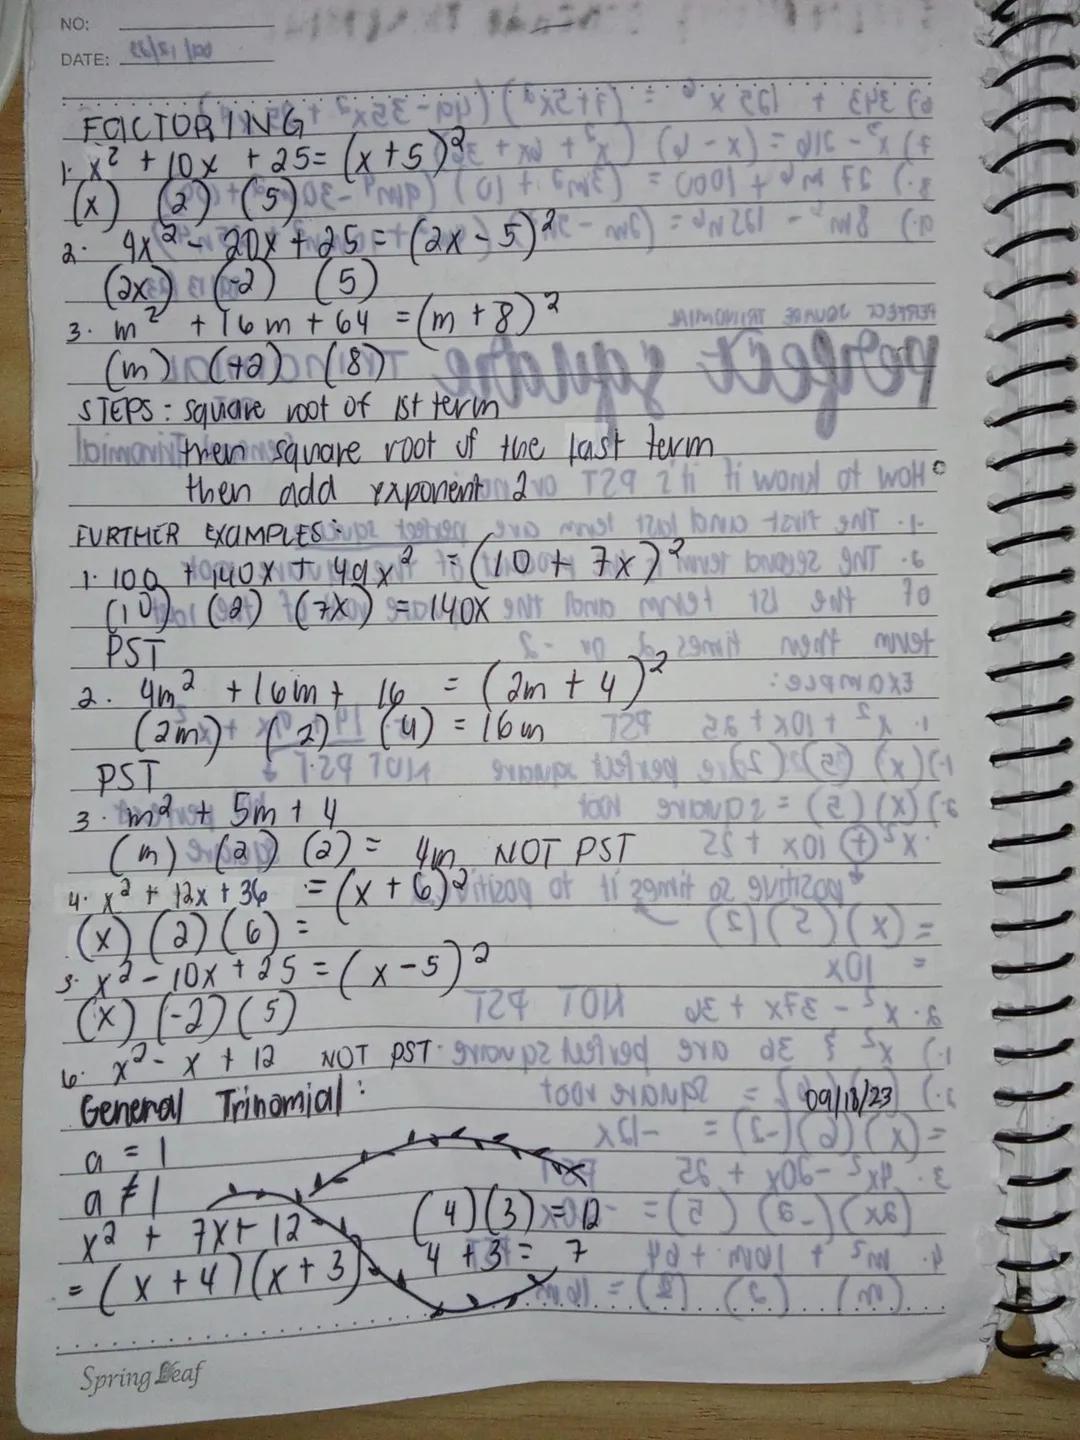 NO:
DATE:
FACTORING
1. x² + 10x + 25 = (x+5)²
(x) (2) (5)
2. 4x² - 20x + 25 = (2x - 5)²
(2x) (-2) (5)
3. m² + 16m + 64 = (m + 8)²
(m) (+2) (8)
STEPS: square root of 1st term
then square root of the last term
then add exponent 2
FURTHER EXAMPLES:
1. 100 + 140x + 49x² = (10 + 7x)²
(10) (2) (7x) = 140x
PST
2. 4m² + 16m + 16 = (2m + 4)²
(2m) (2) (4) = 16m
PST
3. m² + 5m + 4
(m) (2) (2) = 4m NOT PST
4. x² + 12x + 36 = (x + 6)²
(x) (2) (6) =
5. x² - 10x + 25 = (x - 5)²
(x) (-2) (5)
6. x² - x + 12 NOT PST
General Trinomial: 09/18/23
a = 1
a ≠ 1
x² + 7x + 12 (4)(3) = 12
= (x + 4)(x + 3) 4 + 3 = 7
Spring Leaf